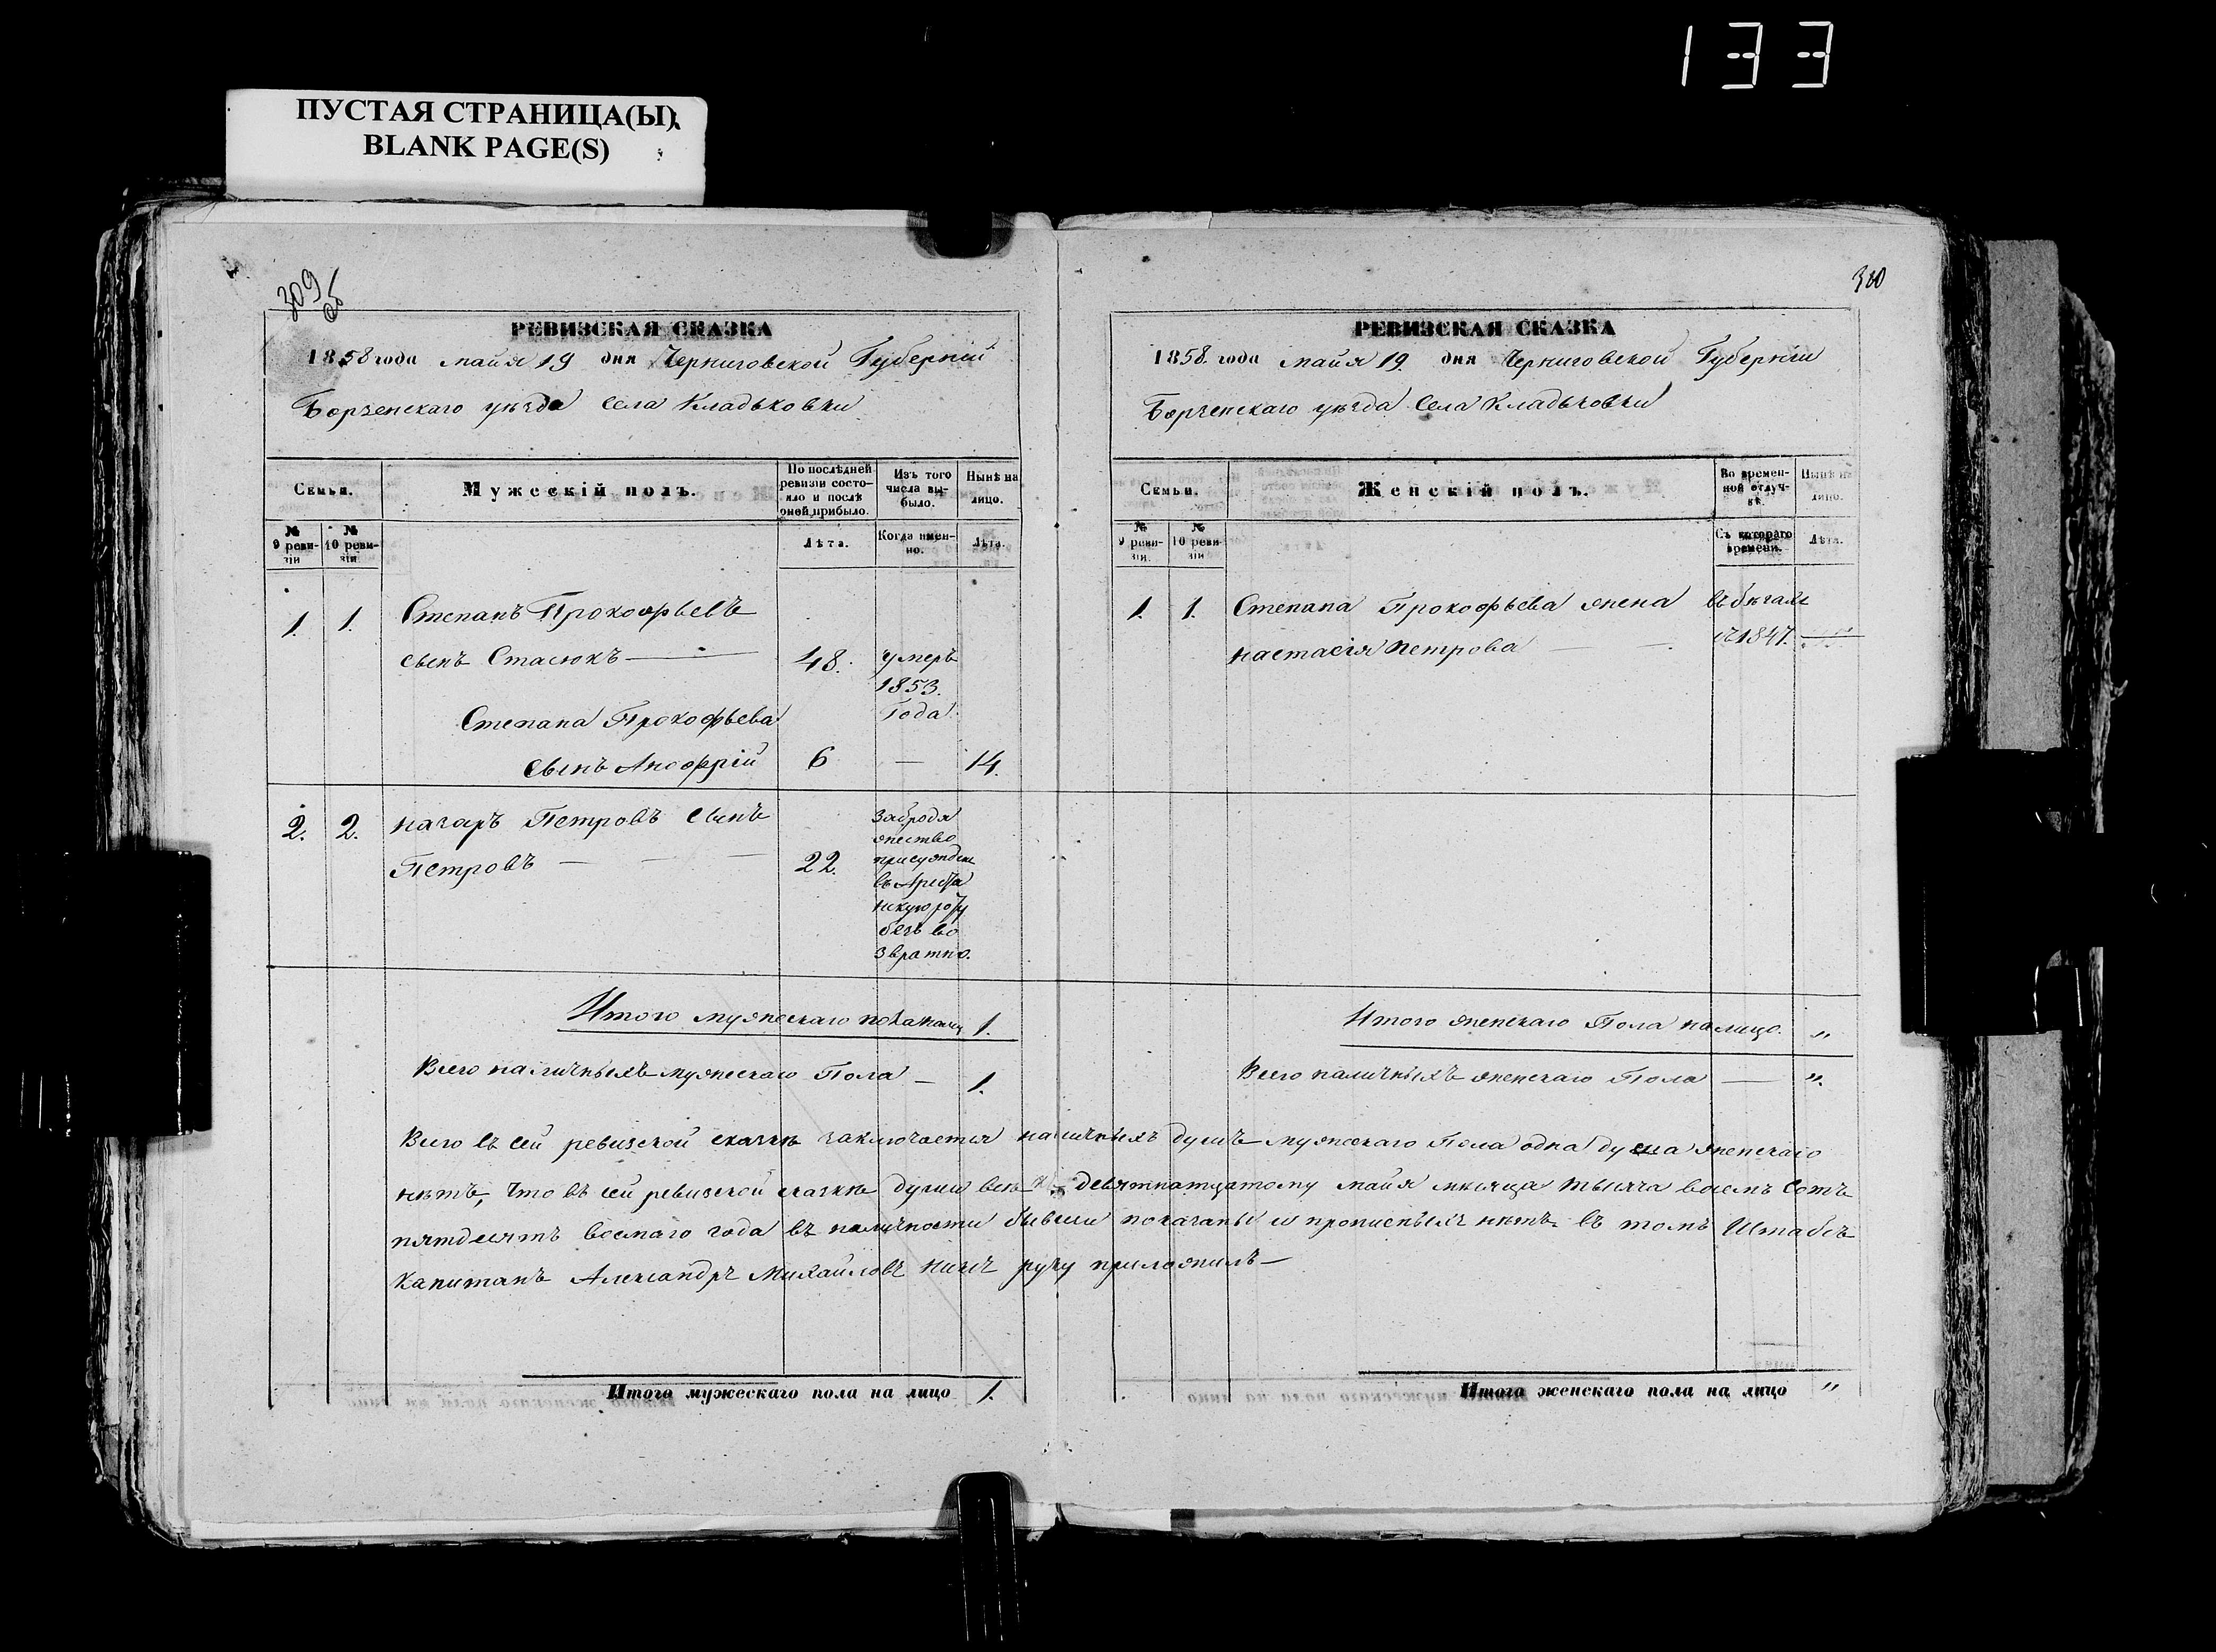 133
ПУСТАЯ СТРАНИЦА(Ы)
BLANK PAGE(S)
309 об
РЕВИЗСКАЯ СКАЗКА
1858 года майя 19 дня Черниговской Губерніи
Борзенскаго уѣзда села Кладьковки
Семьи.
Мужескій полъ.
По послѣдней ревизіи состояло и послѣ оной прибыло.
Изъ того числа выбыло.
Нынѣ на лицо.
№ 9 ревизіи
№ 10 ревизіи.
Лѣта.
Когда именно.
Лѣта.
1. 1. Степанъ Прокофьевъ
сынъ Стасюкъ — 48. умеръ
1853.
Года.
Степана Прокофьева
сынъ Аноффрій 6 — 14.
2. 2. Назаръ Петровъ сынъ
Петровъ — — — 22.
за бродя
жество
присужден
въ Ареста
нскую роту
безъ во
звратно.
Итого мужескаго пола налицо 1.
Всего наличныхъ мужескаго Пола — 1.
310
РЕВИЗСКАЯ СКАЗКА
1858. года майя 19. дня Черниговской Губерніи
Борзенскаго уѣзда Села Кладьковки
Семьи.
Женскій полъ.
Во временной отлучкѣ.
Нынѣ на лицо.
№ 9 ревизіи.
№ 10 ревизіи
Съ котораго времени.
Лѣта.
1. 1. Степана Прокофьева жена въ бѣгахъ
Настасія Петрова — — съ 1847. —
Итого женскаго Пола налицо. „
Всего наличныхъ женскаго Пола — „
Всего въ сей ревизской сказкѣ заключается наличныхъ душъ мужескаго Пола одна душа женскаго
нѣтъ, что въ сей ревизской сказкѣ души всѣ къ девятнатцатому майя мѣсяца тысяча восемъ сотъ
пятдесятъ восмаго года въ наличности бывши показаны и прописныхъ нѣтъ въ томъ Штабсъ
Капитанъ Александръ Михайловъ руку приложилъ —
Итого мужескаго пола на лицо 1.
Итого женскаго пола на лицо „